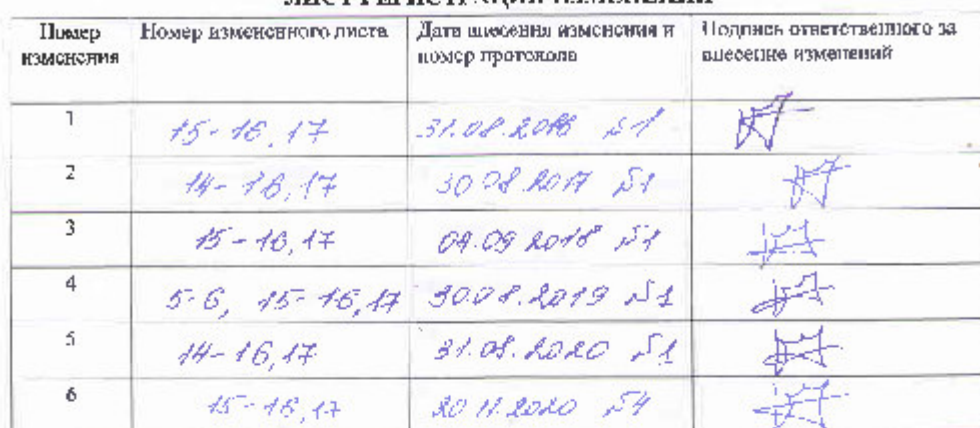 ЛИСТ РЕГИСТРАЦИИ ИЗМЕНЕНИЙ
Номер изменения
Номер измененного листа
Дата внесения изменения и номер протокола
Подпись ответственного за внесение изменений
1 15-16, 17 31.08.2016 №1
2 14-16, 17 30.08.2017 №1
3 15-16, 17 №1
4 5-6, 15-16, 17 30.08.2019 №1
5 14-16, 17 31.08.2020 №1
6 15-16, 17 20.11.2020 №4